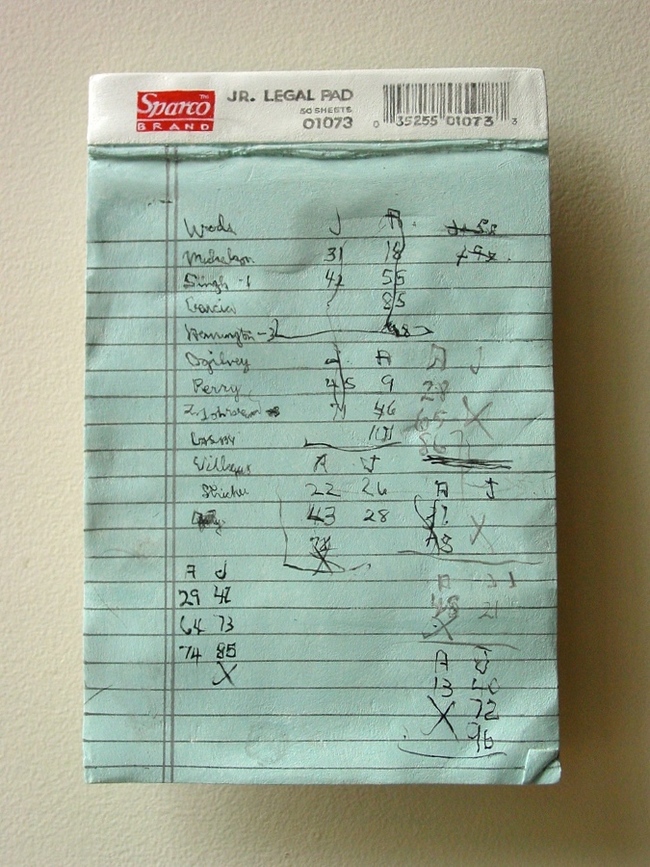 Sparco TM
BRAND
JR. LEGAL PAD
50 SHEETS
01073
0 35255 01073 3
Woods J A
Mickelson 31 18
Singh -1 42 55
Garcia 85
Harrington -3
Ogilvey J A A J
Perry 45 9 28
Z. Johnson 71 46 65 X
101 86
A J
Stricker 22 26 A J
43 28 37 X
78
X
A J A J
29 47 48 21
64 73 X
74 85 A J
X 13 40
X 72
96